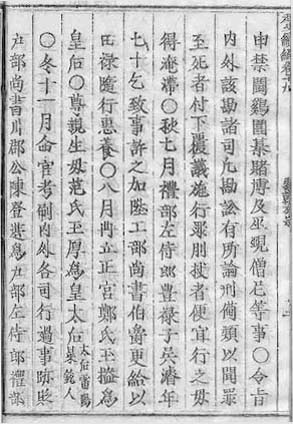 紀續編卷十九
申禁鬪鷄圍碁賭博及巫覡僧尼等事○令旨
内外該勘諸司凡勘訟有所論刑備類以聞罪
至死者付下覆議施行罪刖杖者便宜行之毋
得淹滯○秋七月禮部左侍郎豊祿子吳濬年
七十乞致事許之加陞工部尚書伯爵更給以
田祿隨行惠養○八月冊立正宮鄭氏玉爲
皇后○尊親生母范氏玉厚爲皇太后太后雷陽人
○冬十一月命官考刷内外各司行過事跡貶
部尚書川郡公陳登爲部左侍郎禮部